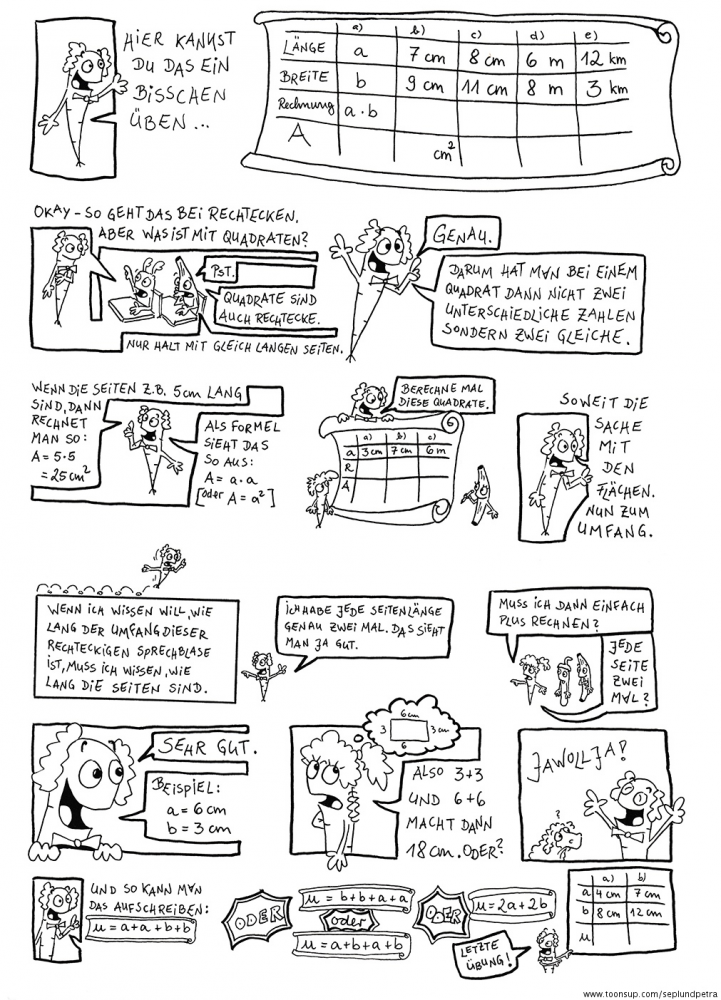 HIER KANNST
DU DAS EIN
BISSCHEN
ÜBEN...
a) b) c) d) e)
LÄNGE a 7 cm 8 cm 6 m 12 km
BREITE b 9 cm 11 cm 8 m 3 km
Rechnung a·b
A cm²
OKAY – SO GEHT DAS BEI RECHTECKEN.
ABER WAS IST MIT QUADRATEN?
PST.
QUADRATE SIND
AUCH RECHTECKE.
NUR HALT MIT GLEICH LANGEN SEITEN.
GENAU.
DARUM HAT MAN BEI EINEM
QUADRAT DANN NICHT ZWEI
UNTERSCHIEDLICHE ZAHLEN
SONDERN ZWEI GLEICHE.
WENN DIE SEITEN Z.B. 5cm LANG
SIND, DANN
RECHNET
MAN SO:
A = 5·5
= 25 cm²
ALS FORMEL
SIEHT DAS
SO AUS:
A = a·a
[oder A = a²]
BERECHNE MAL
DIESE QUADRATE.
a) b) c)
a 3 cm 7 cm 6 m
R
A
SOWEIT DIE
SACHE
MIT
DEN
FLÄCHEN.
NUN ZUM
UMFANG.
WENN ICH WISSEN WILL, WIE
LANG DER UMFANG DIESER
RECHTECKIGEN SPRECHBLASE
IST, MUSS ICH WISSEN, WIE
LANG DIE SEITEN SIND.
ICH HABE JEDE SEITENLÄNGE
GENAU ZWEI MAL. DAS SIEHT
MAN JA GUT.
MUSS ICH DANN EINFACH
PLUS RECHNEN?
JEDE
SEITE
ZWEI
MAL?
SEHR GUT.
BEISPIEL:
a = 6 cm
b = 3 cm
6 cm
3 3 cm
6
ALSO 3+3
UND 6+6
MACHT DANN
18 cm. ODER?
JAWOLLJA!
?
UND SO KANN MAN
DAS AUFSCHREIBEN:
u = a+a+b+b
ODER
u = b+b+a+a
oder
u = a+b+a+b
ODER
u = 2a+2b
LETZTE
ÜBUNG!
a) b)
a 4 cm 7 cm
b 8 cm 12 cm
u
www.toonsup.com/seplundpetra